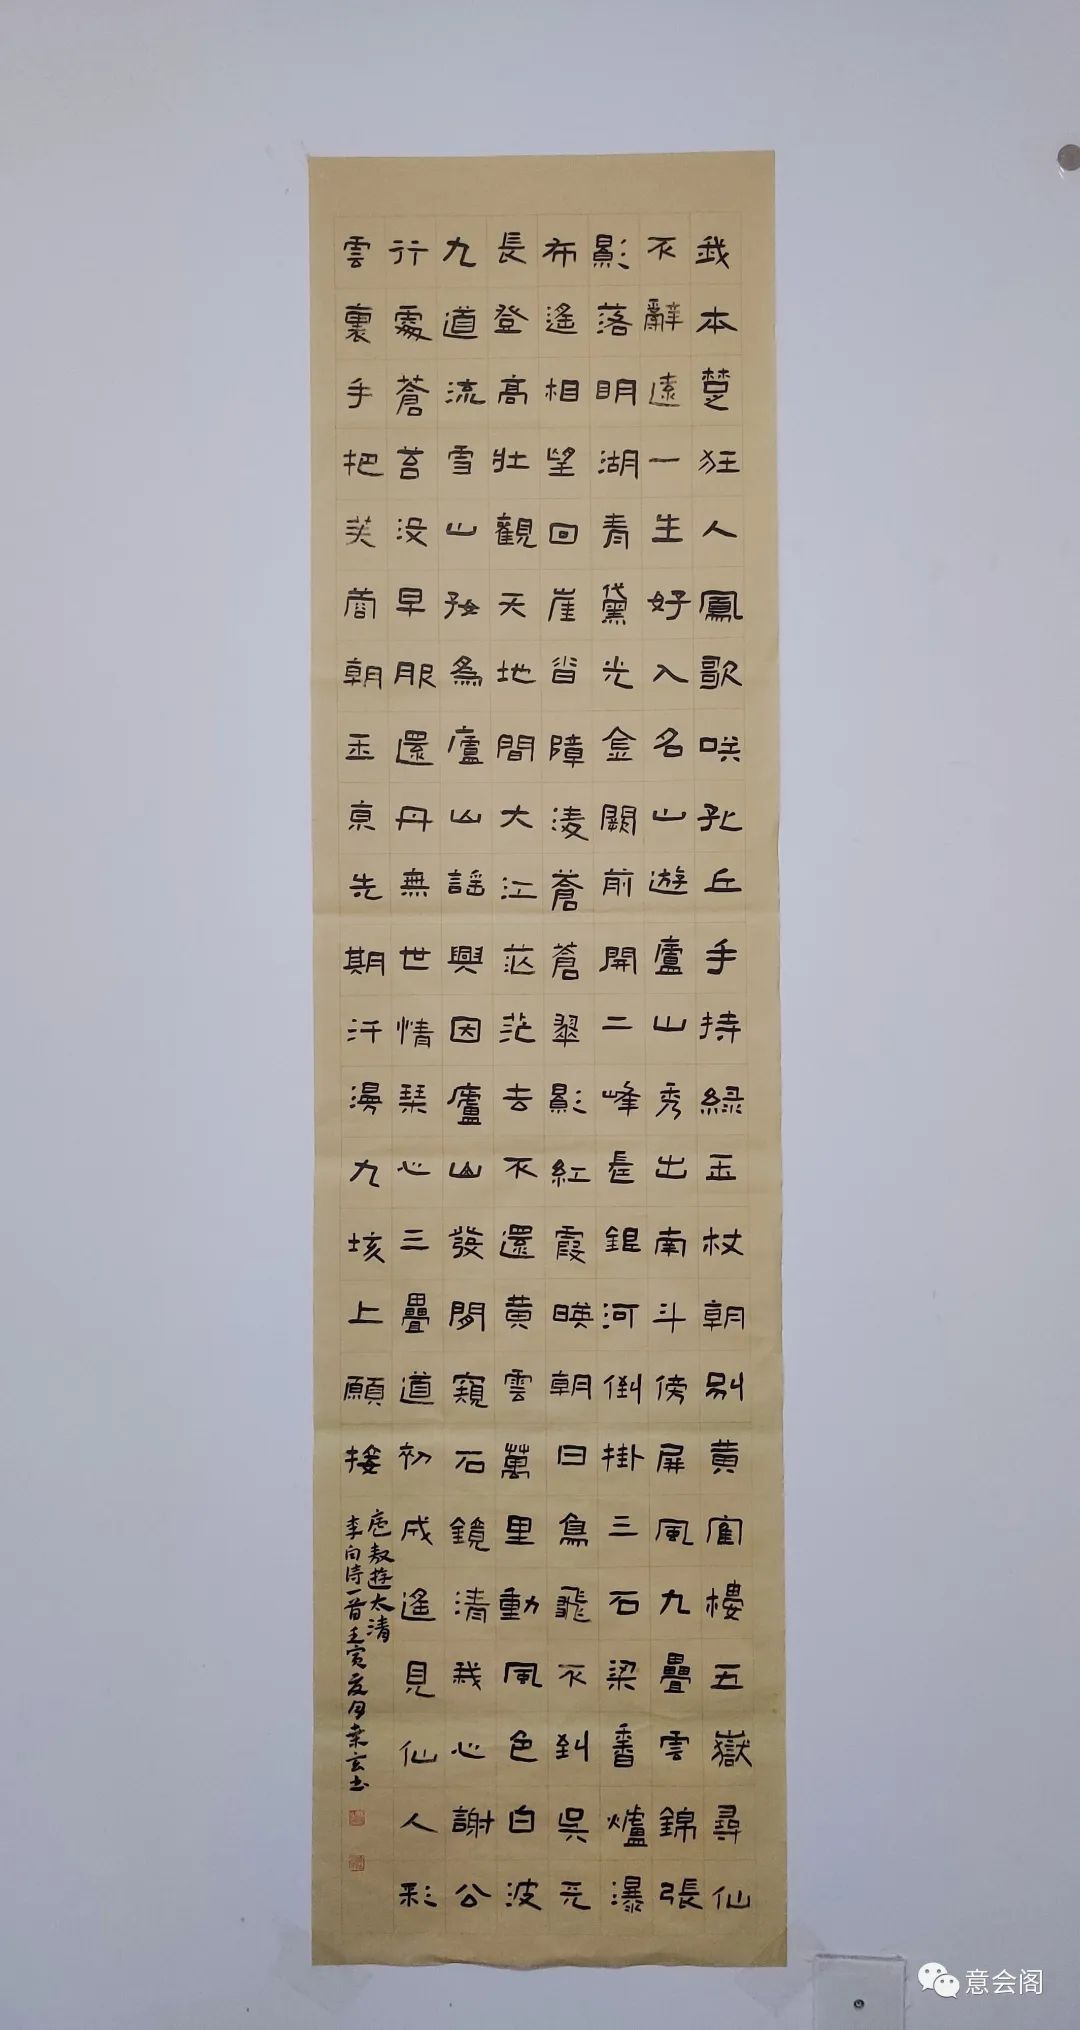 我本楚狂人鳳歌咲孔丘手持緑玉杖朝別黄隺樓五嶽尋仙
不辭遠一生好入名山遊廬山秀出南斗傍屏風九疊雲錦張
影落明湖青黛光金闕前開二峰長銀河倒掛三石梁香爐瀑
布遙相望回崖沓障凌蒼蒼翠影紅霞映朝日鳥飛不到吳天
長登高壯觀天地間大江茫茫去不還黄雲萬里動風色白波
九道流雪山好為廬山謠興因廬山發閒窺石鏡清我心謝公
行處蒼苔没早服還丹無世情琴心三疊道初成遙見仙人彩
雲裏手把芙蓉朝玉京先期汗漫九垓上願接
盧敖遊太清
李白詩一首壬寅夏月玄书
意会阁